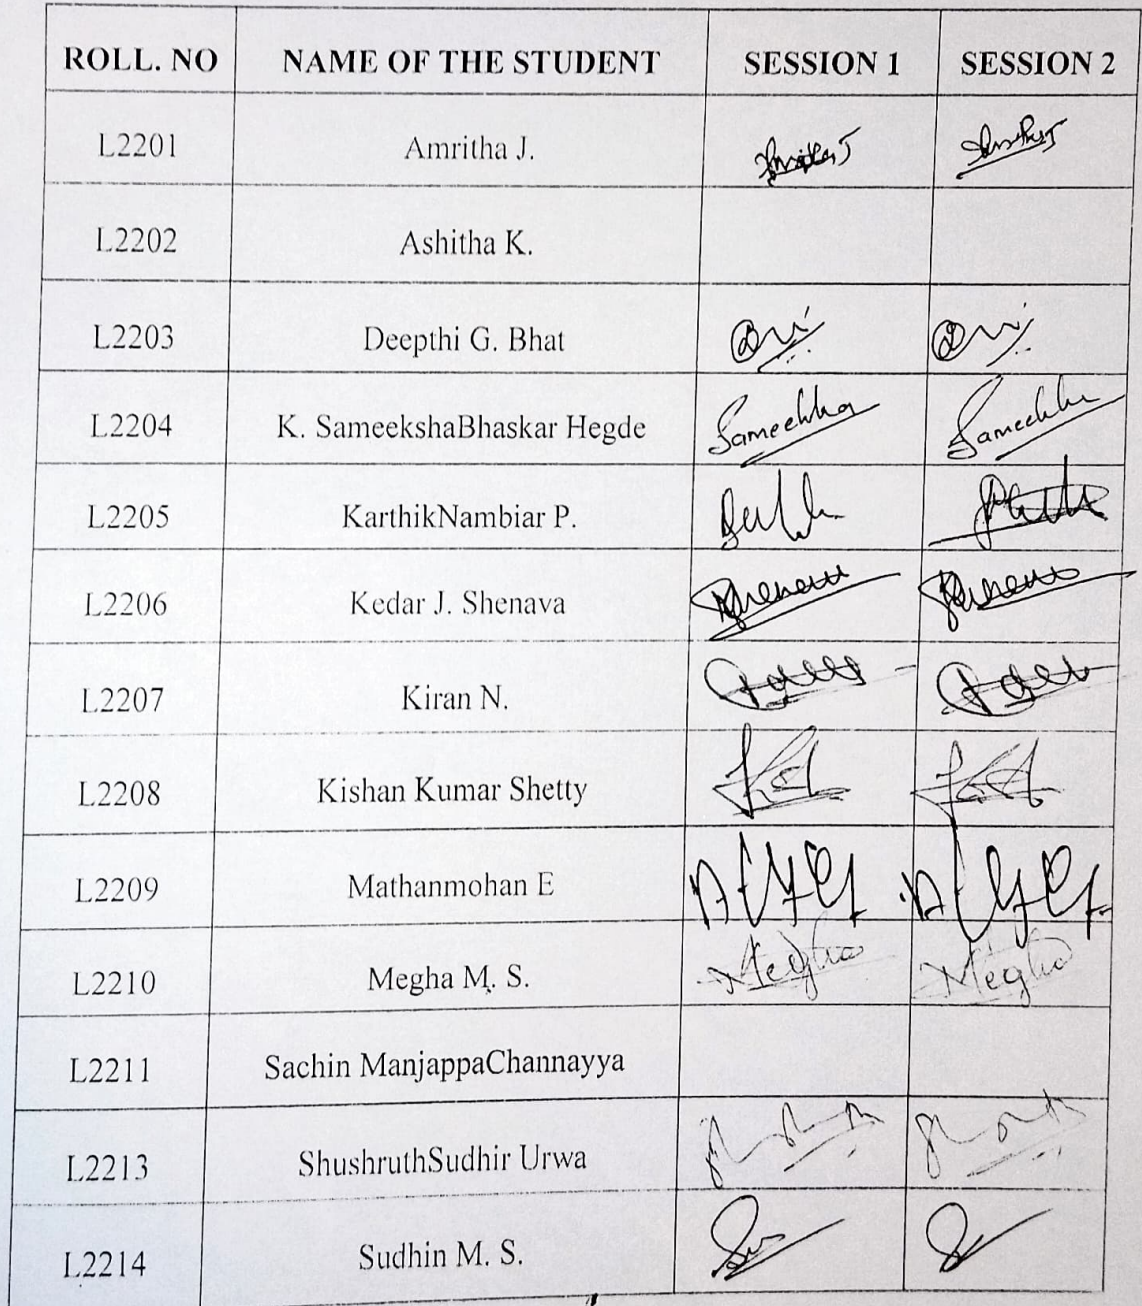 ROLL. NO NAME OF THE STUDENT SESSION 1 SESSION 2
L2201 Amritha J.
L2202 Ashitha K.
L2203 Deepthi G. Bhat
L2204 K. SameekshaBhaskar Hegde Sameekha
L2205 KarthikNambiar P.
L2206 Kedar J. Shenava
L2207 Kiran N.
L2208 Kishan Kumar Shetty
L2209 Mathanmohan E
L2210 Megha M. S. Megha Megha
L2211 Sachin ManjappaChannayya
L2213 ShushruthSudhir Urwa
L2214 Sudhin M. S.